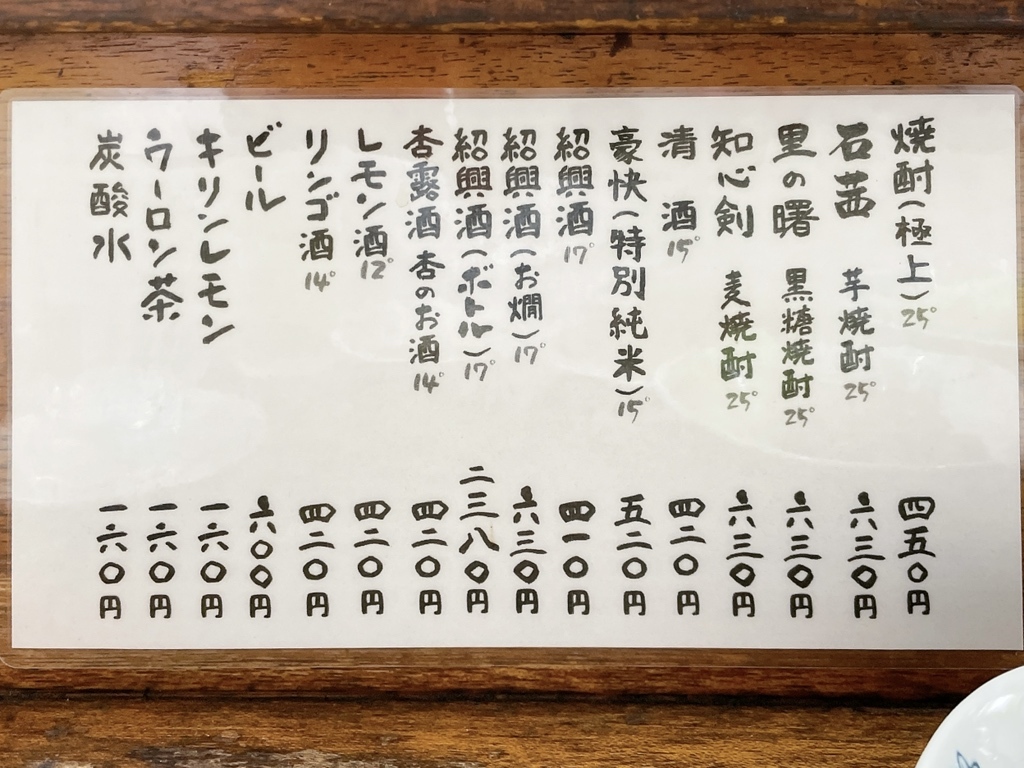 焼酎(極上)25° 四五〇円
石茜 芋焼酎25° 六三〇円
里の曙 黒糖焼酎25° 六三〇円
知心剣 麦焼酎25° 六三〇円
清酒15° 四二〇円
豪快(特別純米)15° 五二〇円
紹興酒17° 四一〇円
紹興酒(お燗)17° 六三〇円
紹興酒(ボトル)17° 二三八〇円
杏露酒 杏のお酒14° 四二〇円
レモン酒12° 四二〇円
リンゴ酒14° 四二〇円
ビール 六〇〇円
キリンレモン 一六〇円
ウーロン茶 一六〇円
炭酸水 一六〇円